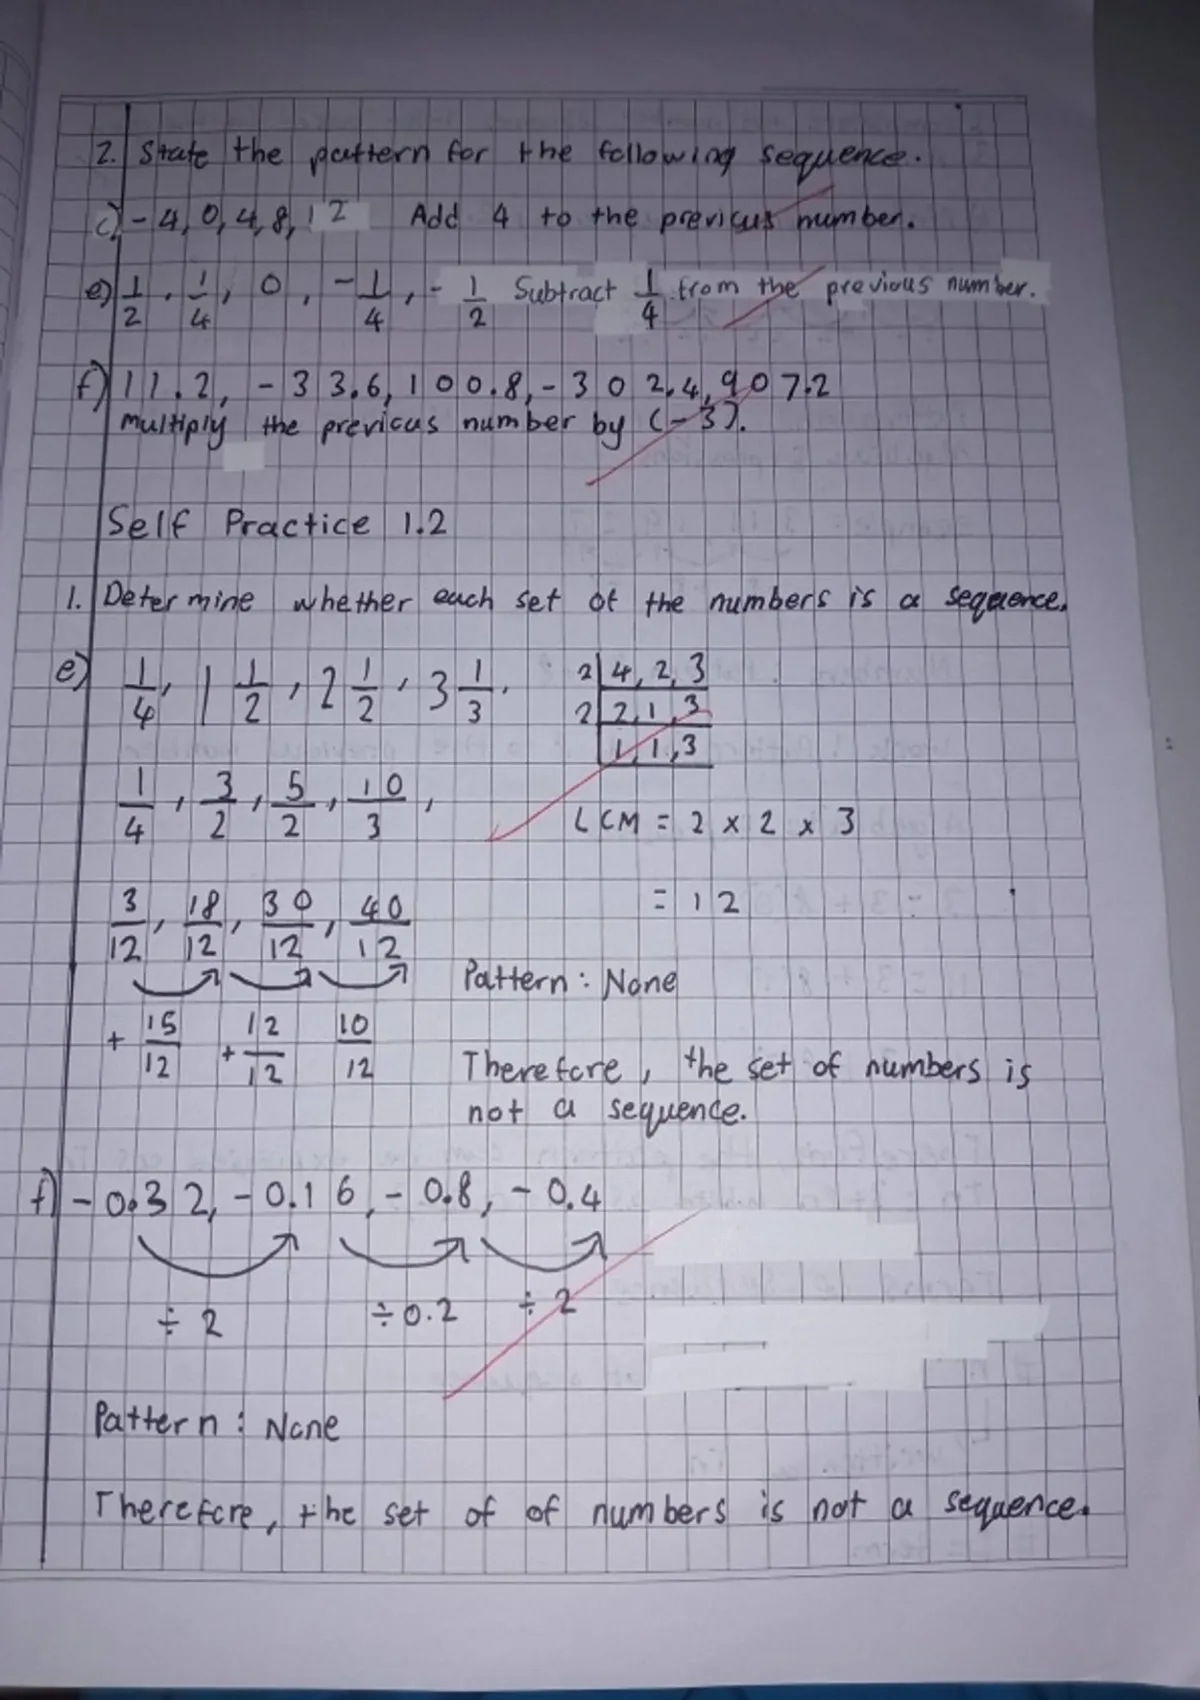 2. State the pattern for the following sequence.
c) -4, 0, 4, 8, 12 Add 4 to the previous number.
e) 1/2, 1/4, 0, -1/4, -1/2 Subtract 1/4 from the previous number.
f) 11.2, -33.6, 100.8, -302.4, 907.2
Multiply the previous number by (-3).
Self Practice 1.2
1. Determine whether each set of the numbers is a sequence.
e) 1/4, 1 1/2, 2 1/2, 3 1/3,
2 | 4, 2, 3
2 | 2, 1, 3
| 1, 1, 3
1/4, 3/2, 5/2, 10/3,
LCM = 2 x 2 x 3
= 12
3/12, 18/12, 30/12, 40/12
+ 15/12 + 12/12 10/12
Pattern: None
Therefore, the set of numbers is
not a sequence.
f) -0.32, -0.16, -0.8, -0.4
÷ 2 ÷ 0.2 ÷ 2
Pattern: None
Therefore, the set of of numbers is not a sequence.